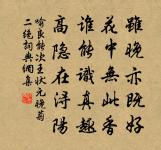 雖晚亦既好
花中無此香
誰能識真趣
高隱在潯陽
喻良能次王狀元晚菊
二絕詞典網集